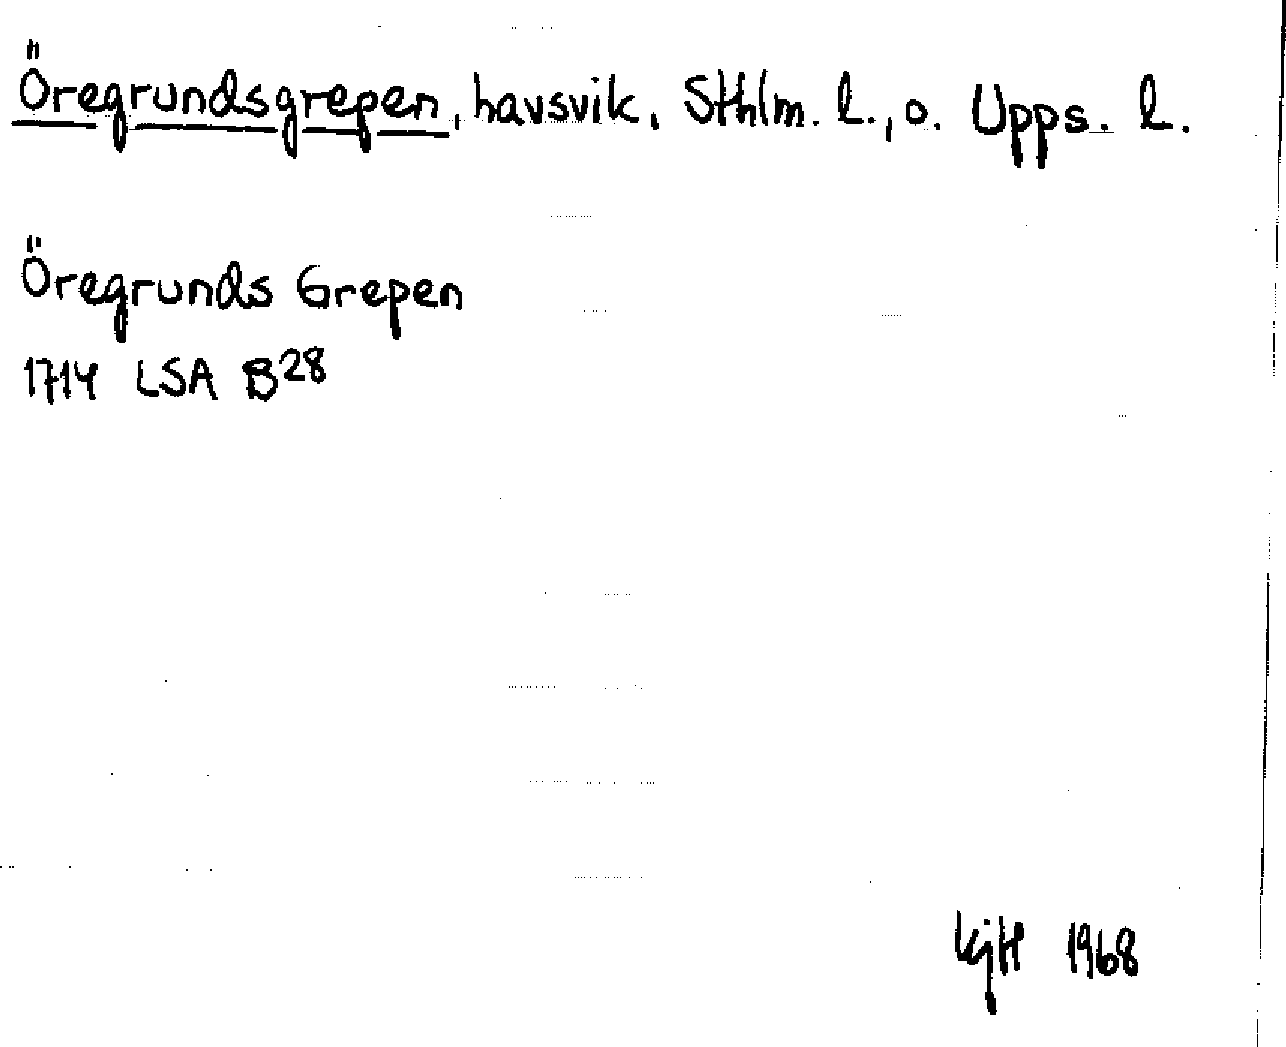 Öregrundsgrepen, havsvik, Sthlm. l., o. Upps. l.
Öregrunds Grepen
1714 LSA B28
KjH 1968